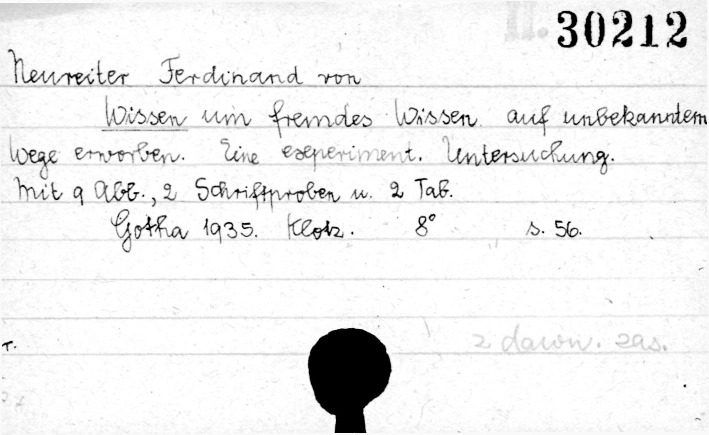 II. 30212
Neureiter Ferdinand von
Wissen um fremdes Wissen auf unbekanntem
Wege erworben. Eine experiment. Untersuchung.
Mit 9 Abb., 2 Schriftproben u. 2 Tab.
Gotha 1935. Klotz. 8° s. 56.
z dawn. zas.
T.